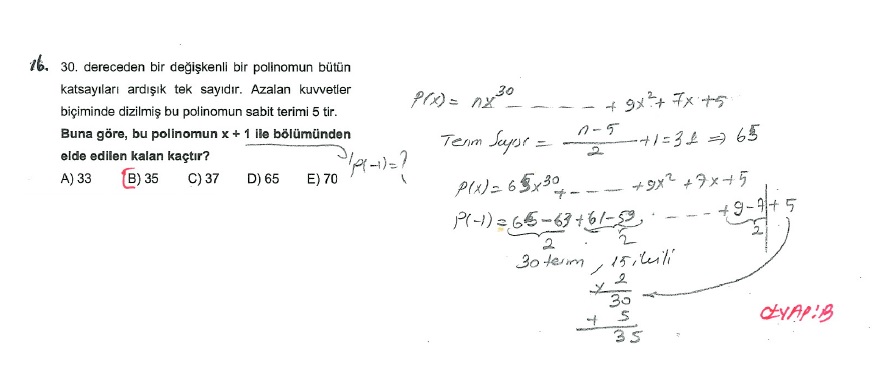 16. 30. dereceden bir değişkenli bir polinomun bütün
katsayıları ardışık tek sayıdır. Azalan kuvvetler
biçiminde dizilmiş bu polinomun sabit terimi 5 tir.
Buna göre, bu polinomun x + 1 ile bölümünden
elde edilen kalan kaçtır?
P(-1)=?
A) 33 B) 35 C) 37 D) 65 E) 70
P(x) = nx^30 - - - - - + 9x² + 7x + 5
Terim Sayısı = (n-5)/2 + 1 = 31 ⇒ 65
P(x) = 65x^30 + - - - - + 9x² + 7x + 5
P(-1) = 65 - 63 + 61 - 59 . - - - - + 9 - 7 + 5
2 2 2
30 terim, 15 ikili
x 2
30
+ 5
35
CEVAP: B